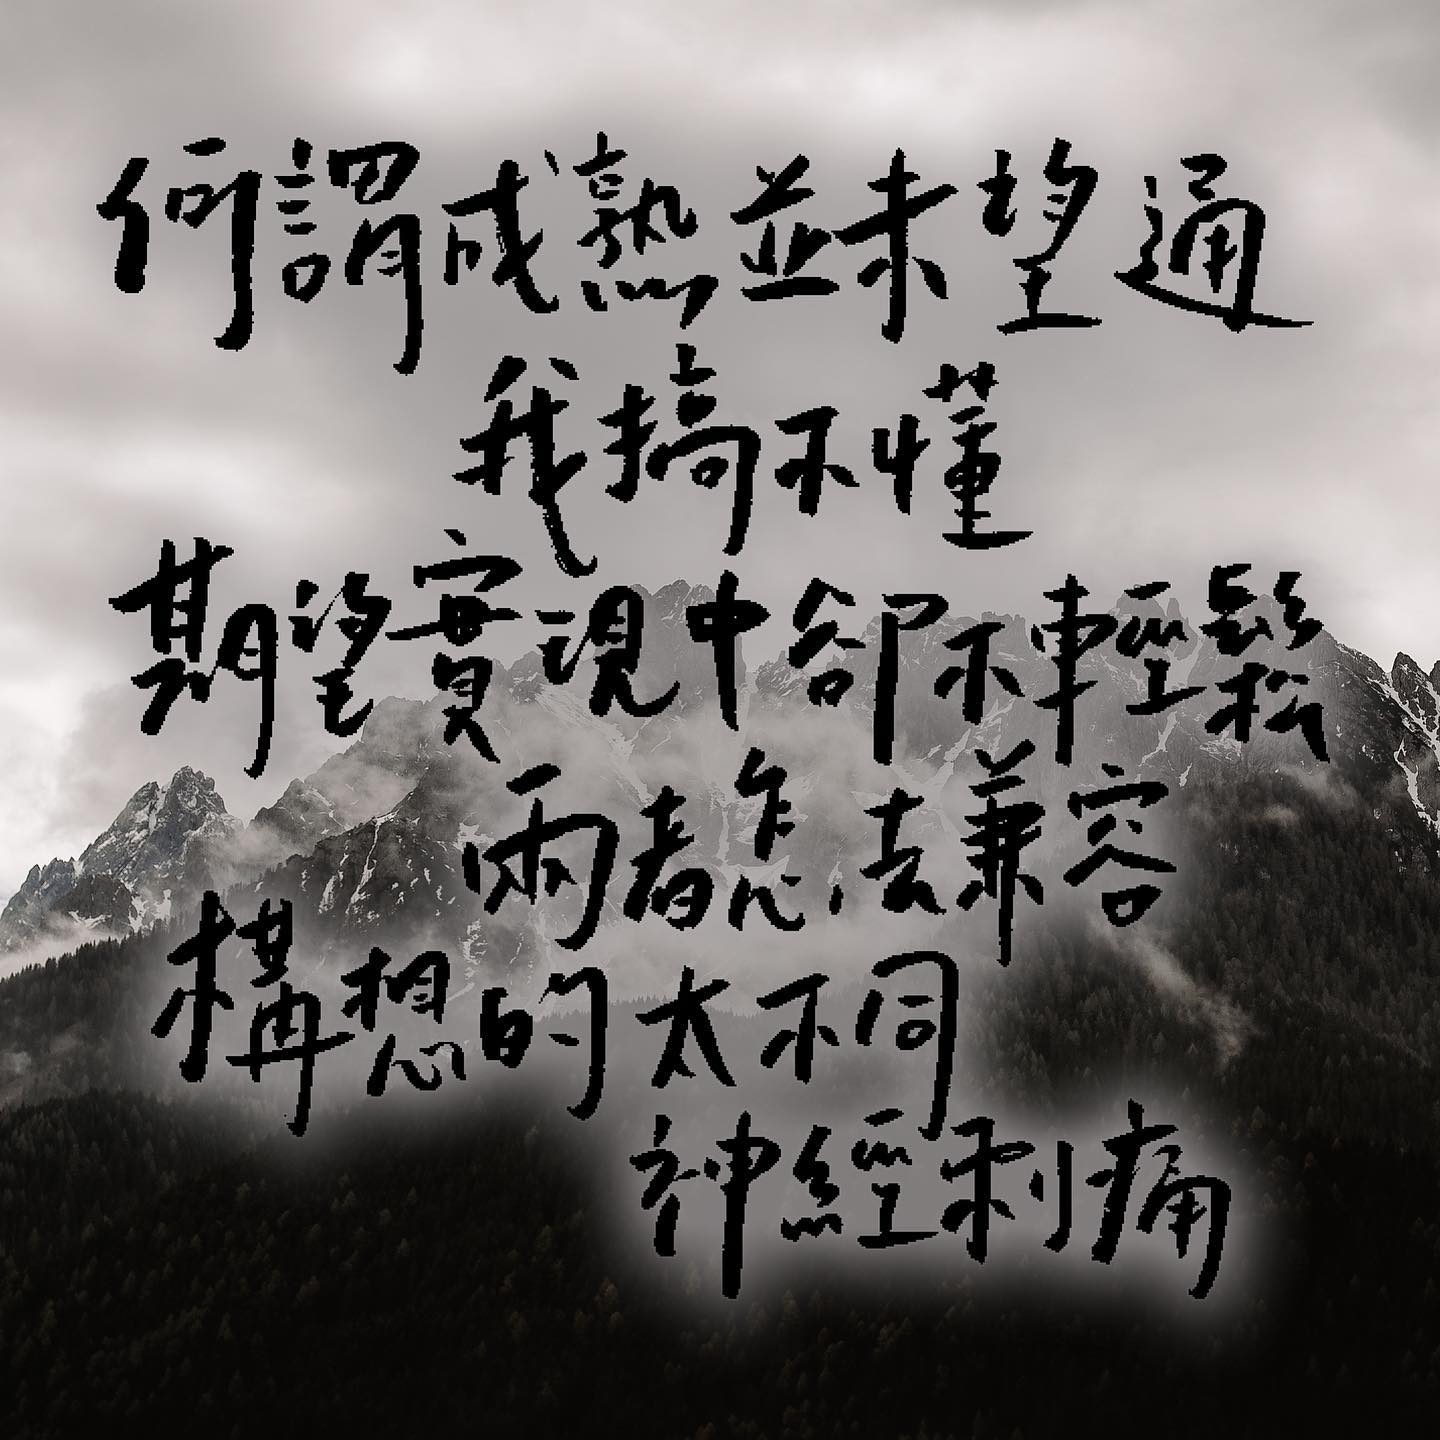 何謂成熟並未望通
我搞不懂
期望實現中卻不輕鬆
兩者怎去兼容
構想的太不同
神經刺痛